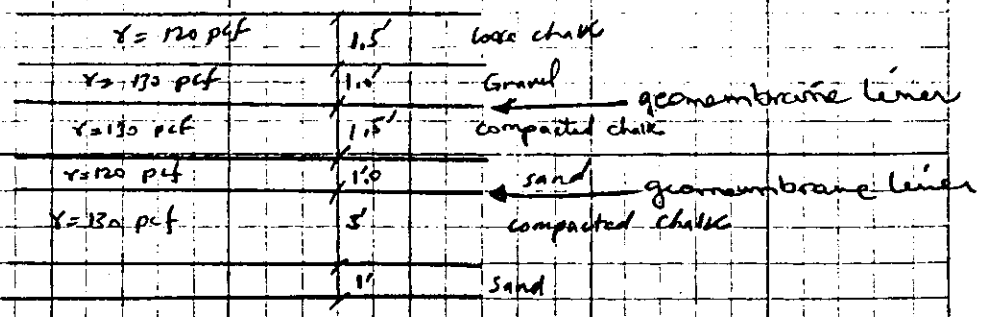 γ = 120 pcf 1.5' loose chalk
γ = 130 pcf 1.0' Gravel
geomembrane liner
γ = 130 pcf 1.5' compacted chalk
γ = 120 pcf 1.0 sand
geomembrane liner
γ = 130 pcf 3' compacted chalk
1' Sand